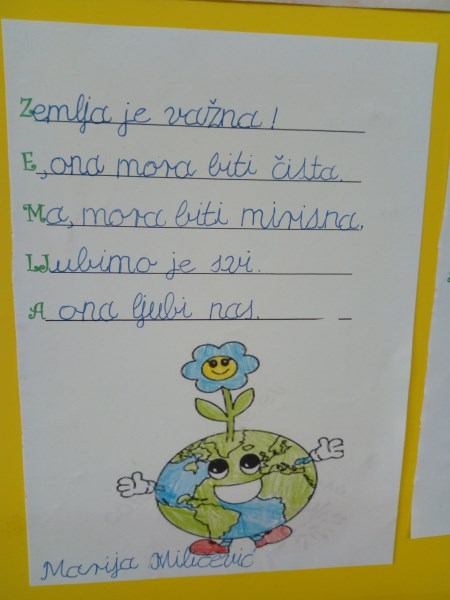 Zemlja je važna!
E, ona mora biti čista.
Ma, mora biti mirisna.
LJubimo je svi.
A ona ljubi nas.
Marija Milićević